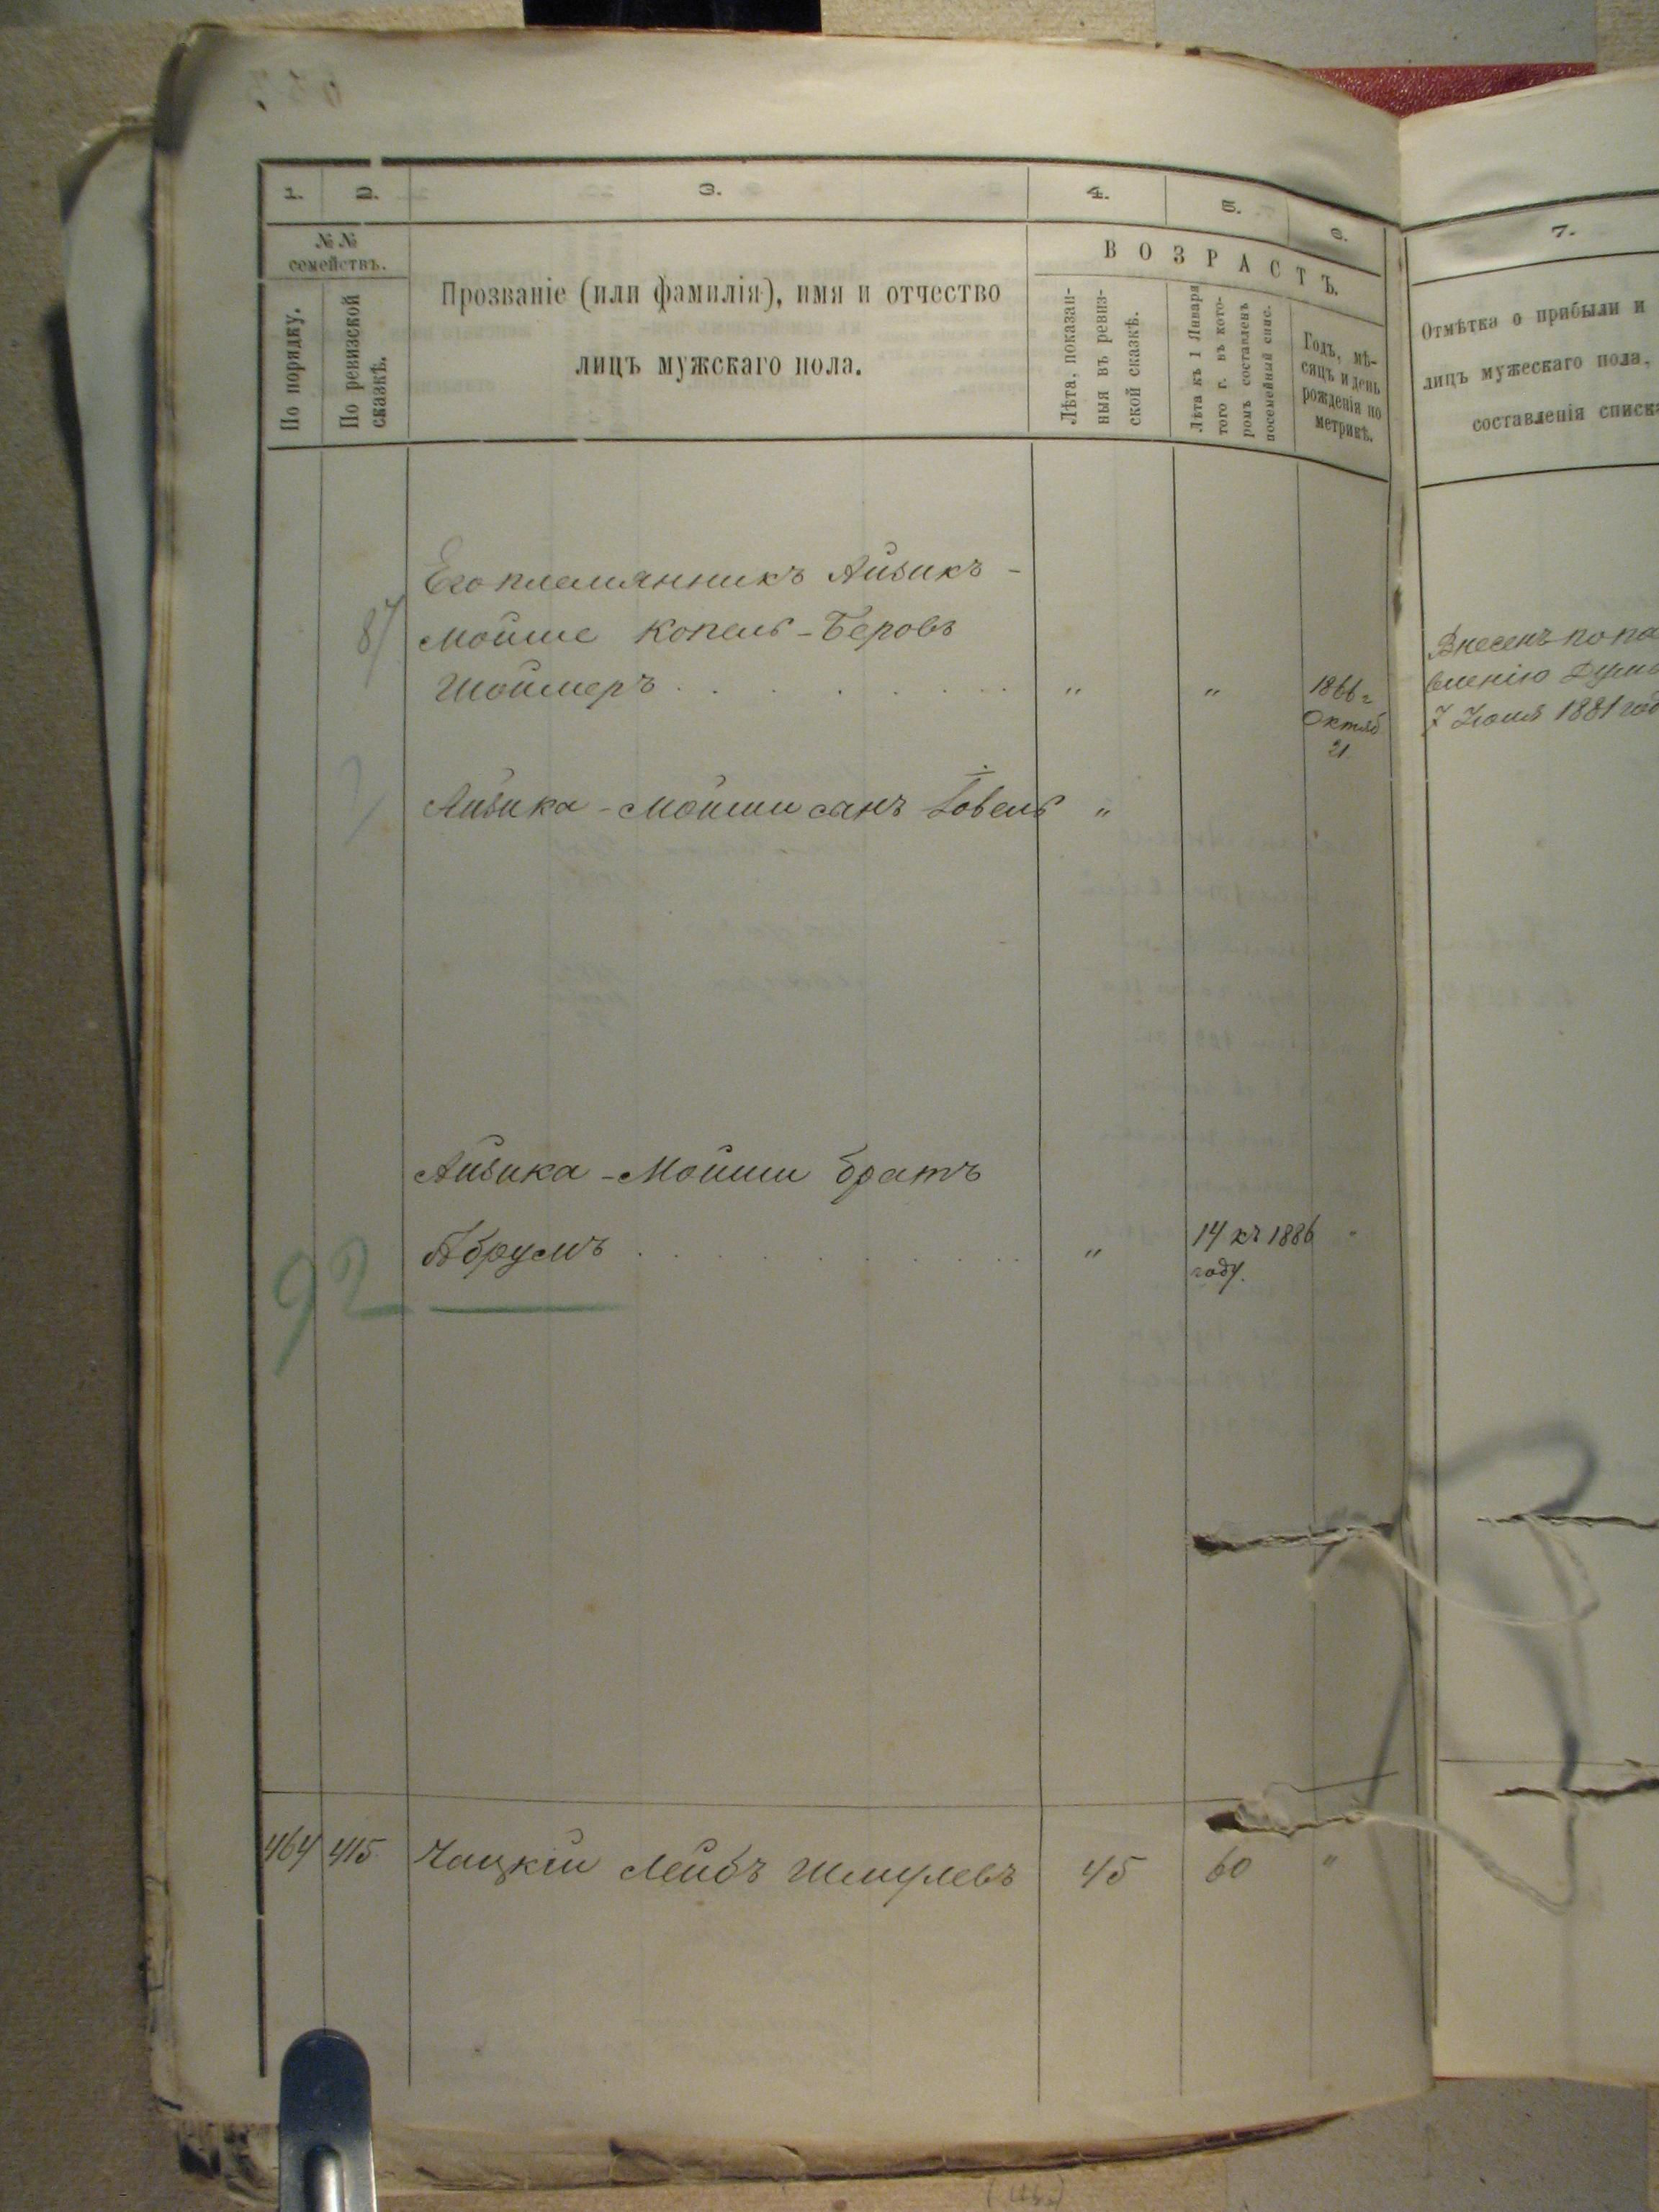 1. 2. 3. 4. 5. 6.
№ № семействъ.
По порядку.
По ревизской сказкѣ.
Прозваніе (или фамилія), имя и отчество
лицъ мужскаго пола.
ВОЗРАСТЪ.
Лѣта, показан-
ныя въ ревиз-
ской сказкѣ.
Лѣта къ 1 Января
того г. въ кото-
ромъ составленъ
посемейный спис.
Годъ, мѣ-
сяцъ и день
рожденія по
метрикѣ.
Его племянникъ Айзикъ -
87 Мойше Копель-Беровъ
Шоймеръ . . . . . . . . " " 1866 г
Октяб
21
Айзика - Мойши сынъ "
Айзика - Мойши братъ
Абрумъ . . . . . . . . " 14 къ 1886 "
году.
92
464 415 Чацкій Лейбъ Шмулевъ 45 60 "
7.
Отмѣтка о прибыли и
лицъ мужескаго пола,
составленія списка
Внесенъ по по
вленію Думы
7 Іюля 1881 год